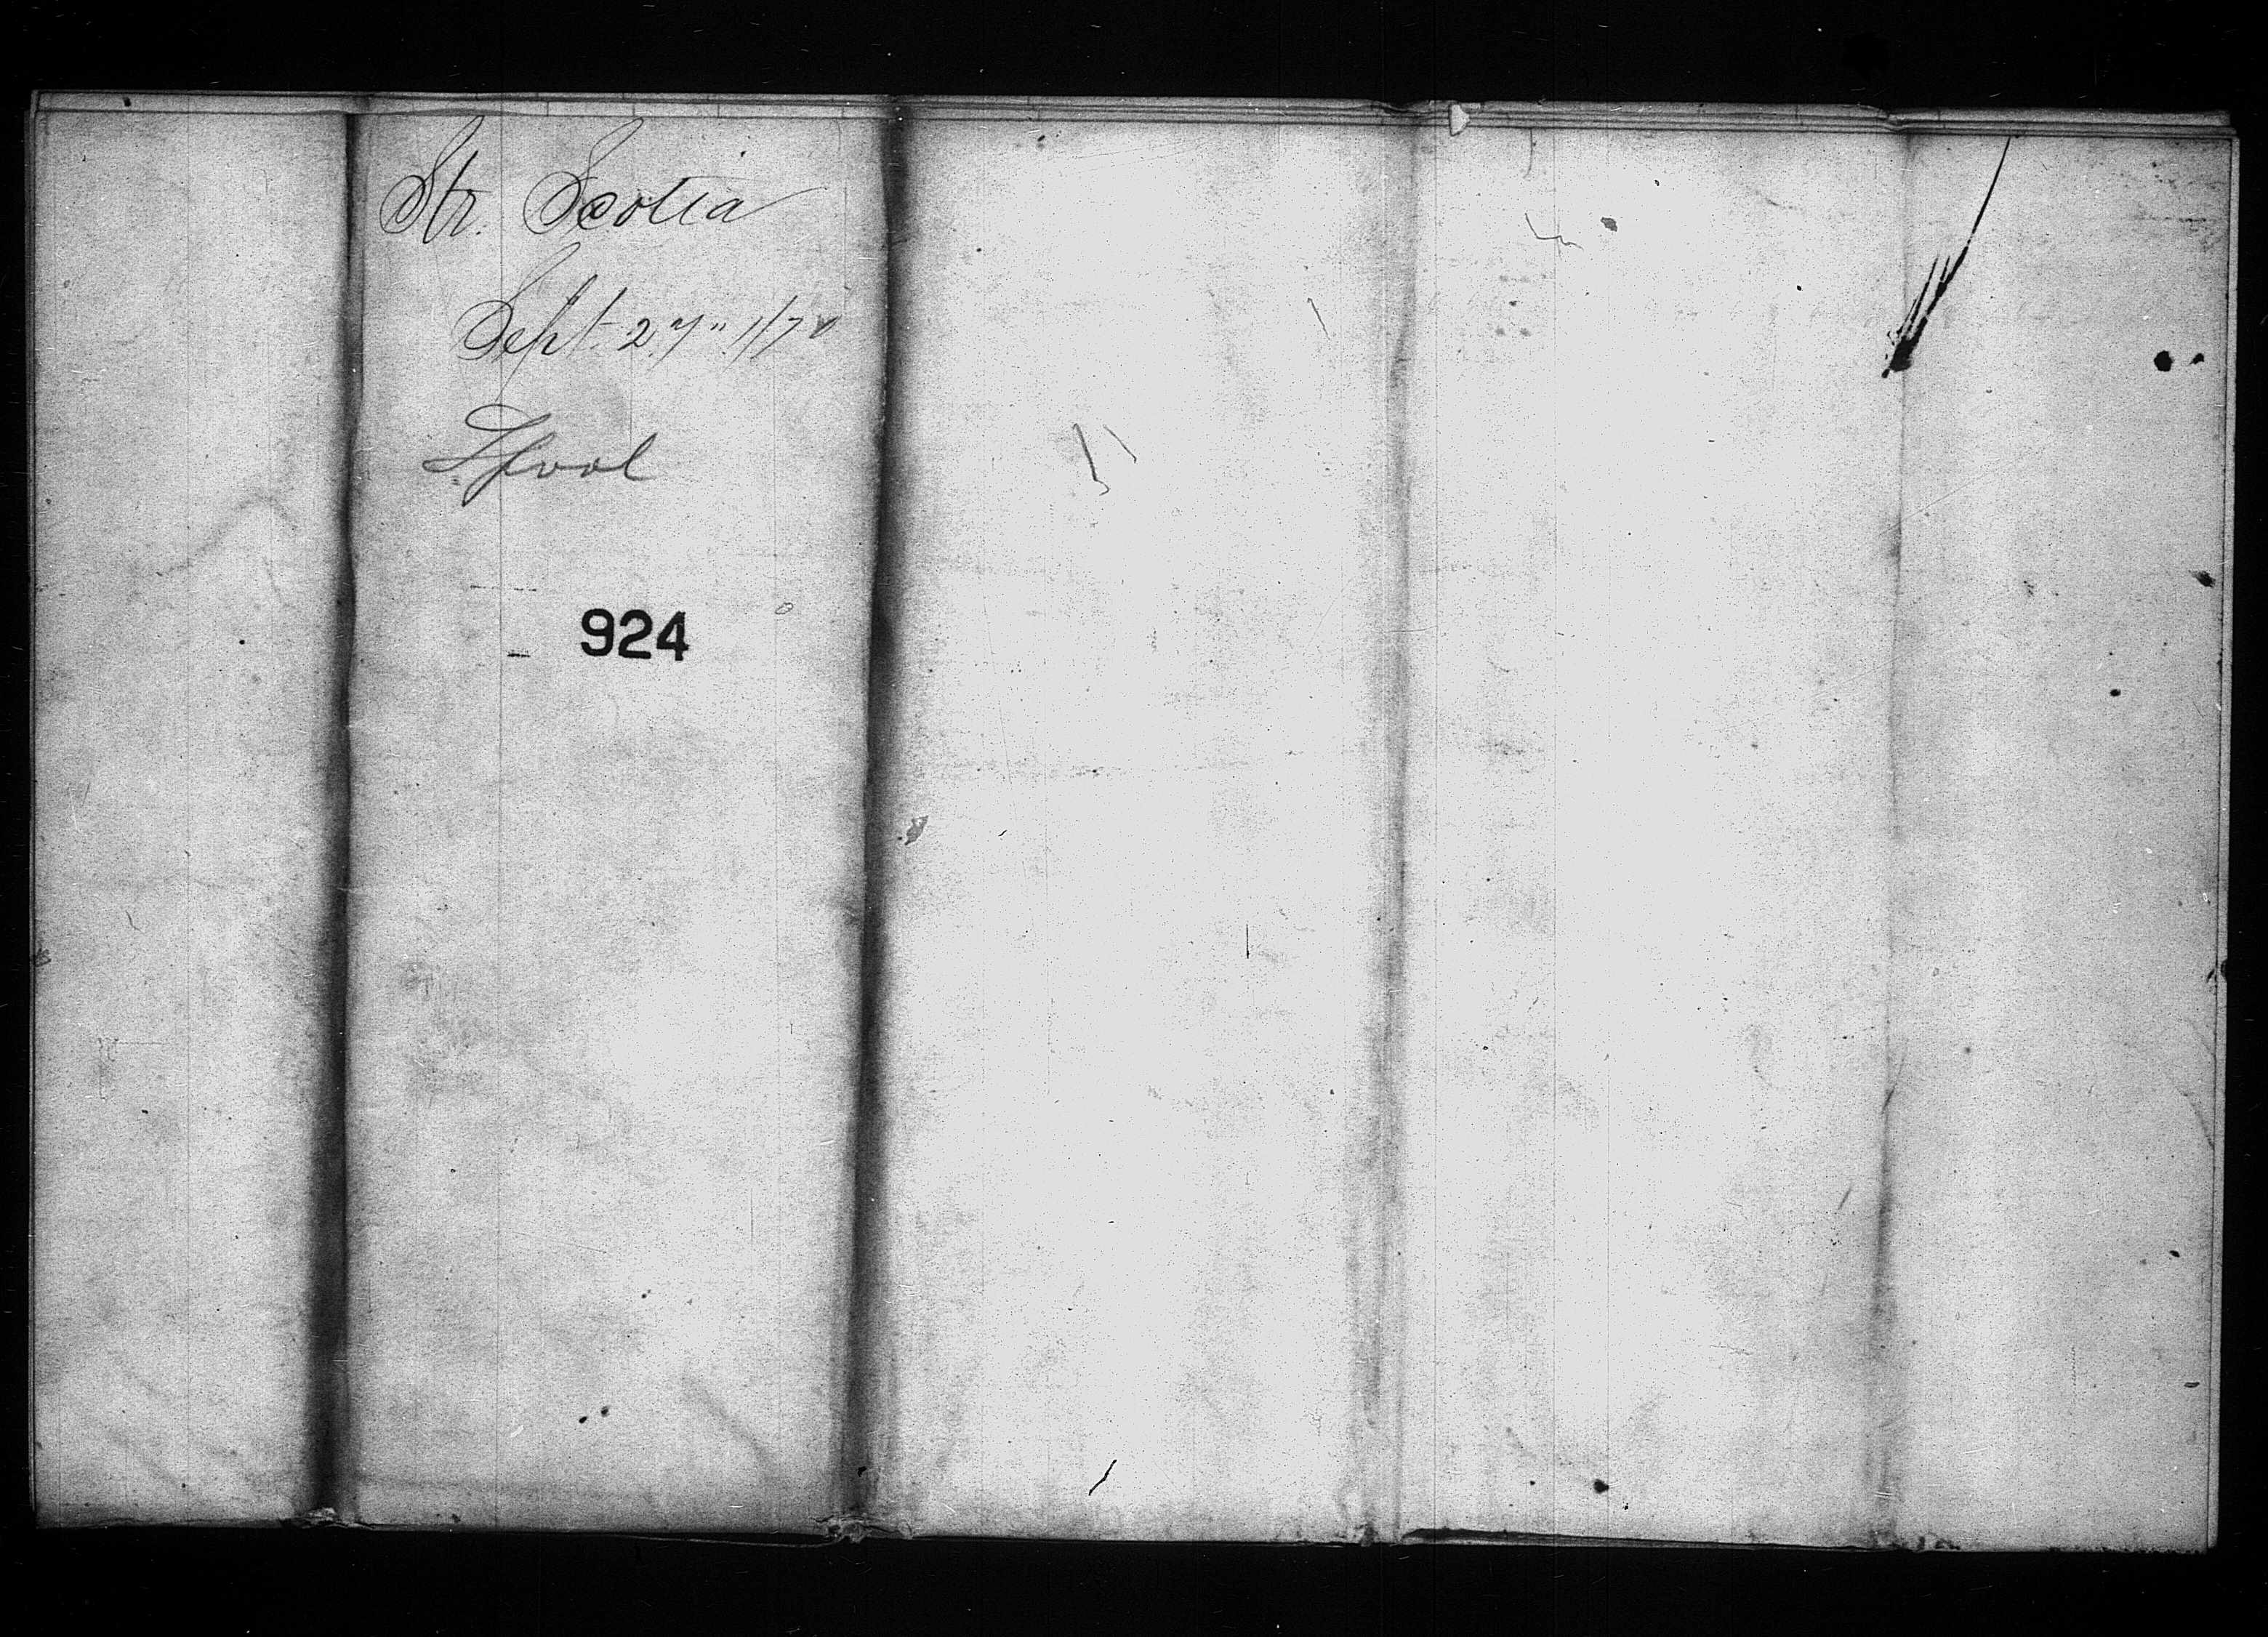 Str. Scotia
Sept. 27"
Lpool
924